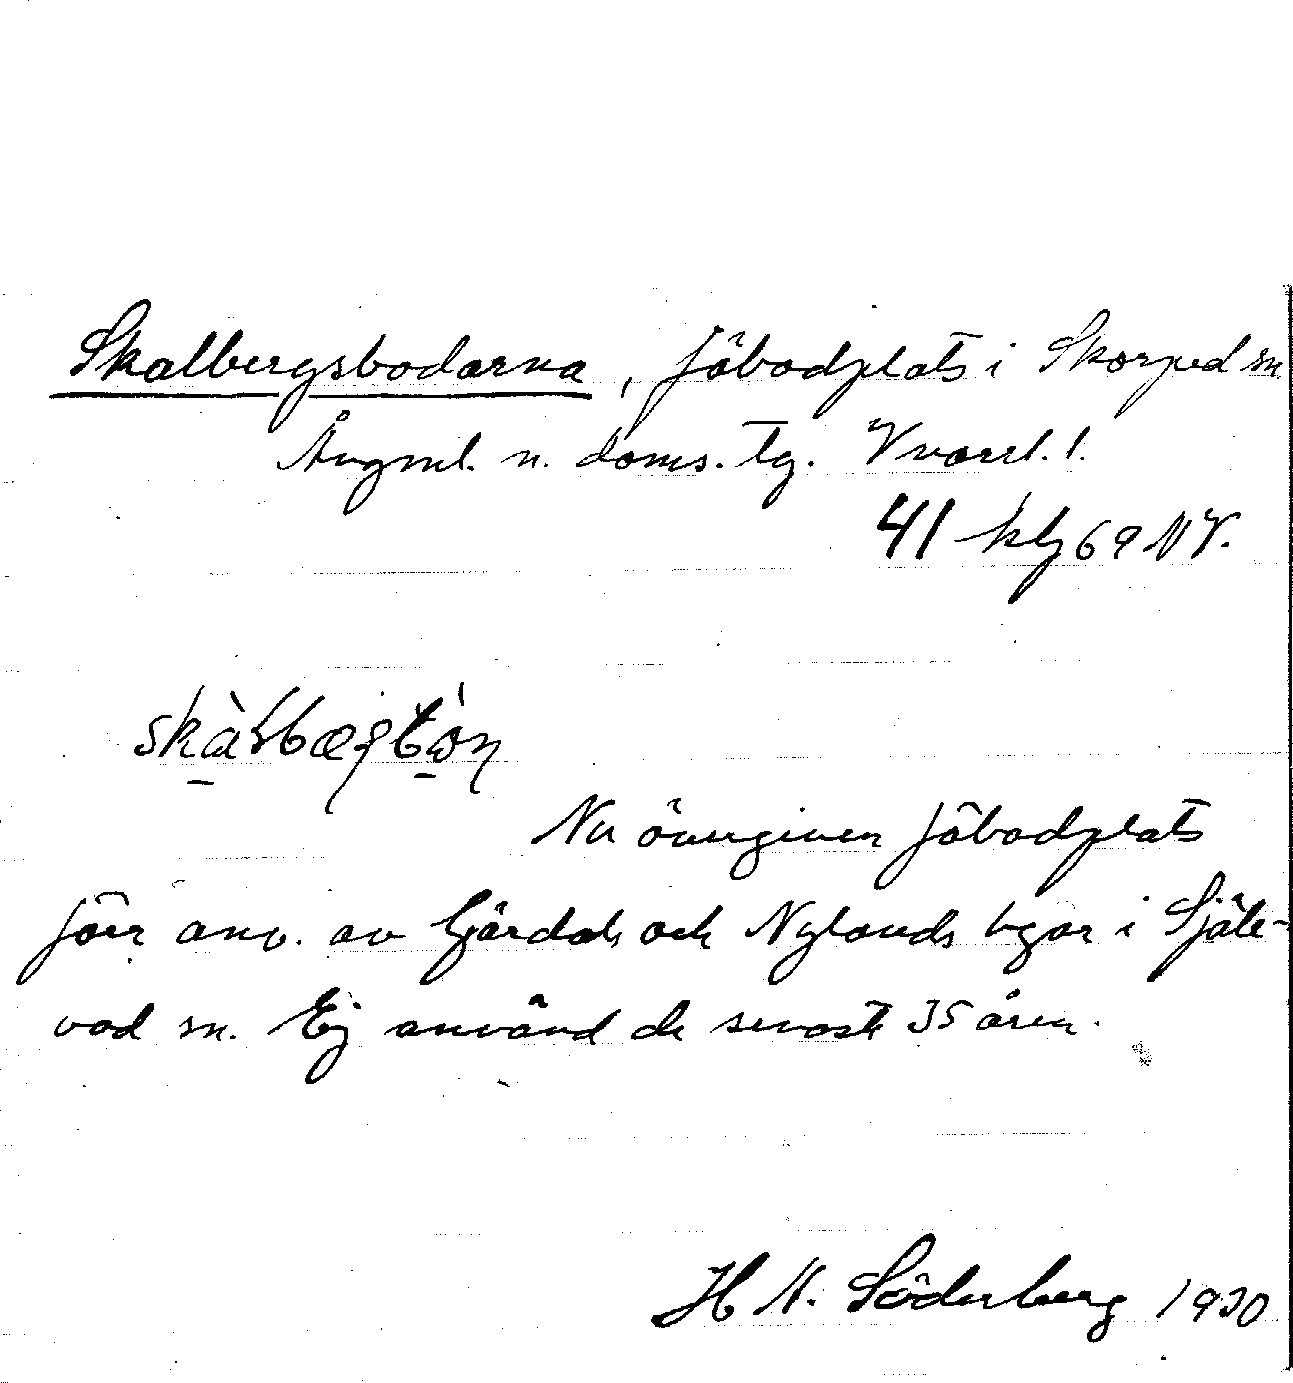 Skalbergsbodarna, fäbodplats i Skorped sn
Ångml. n. doms. tg. Vnorrl. l.
41 kbg 69 NV.
Nu övergiven fäbodplats
förr anv. av Gärdals och Nylands byar i Själe-
vad sn. Ej använd de senaste 35 åren.
H N. Söderberg 1930